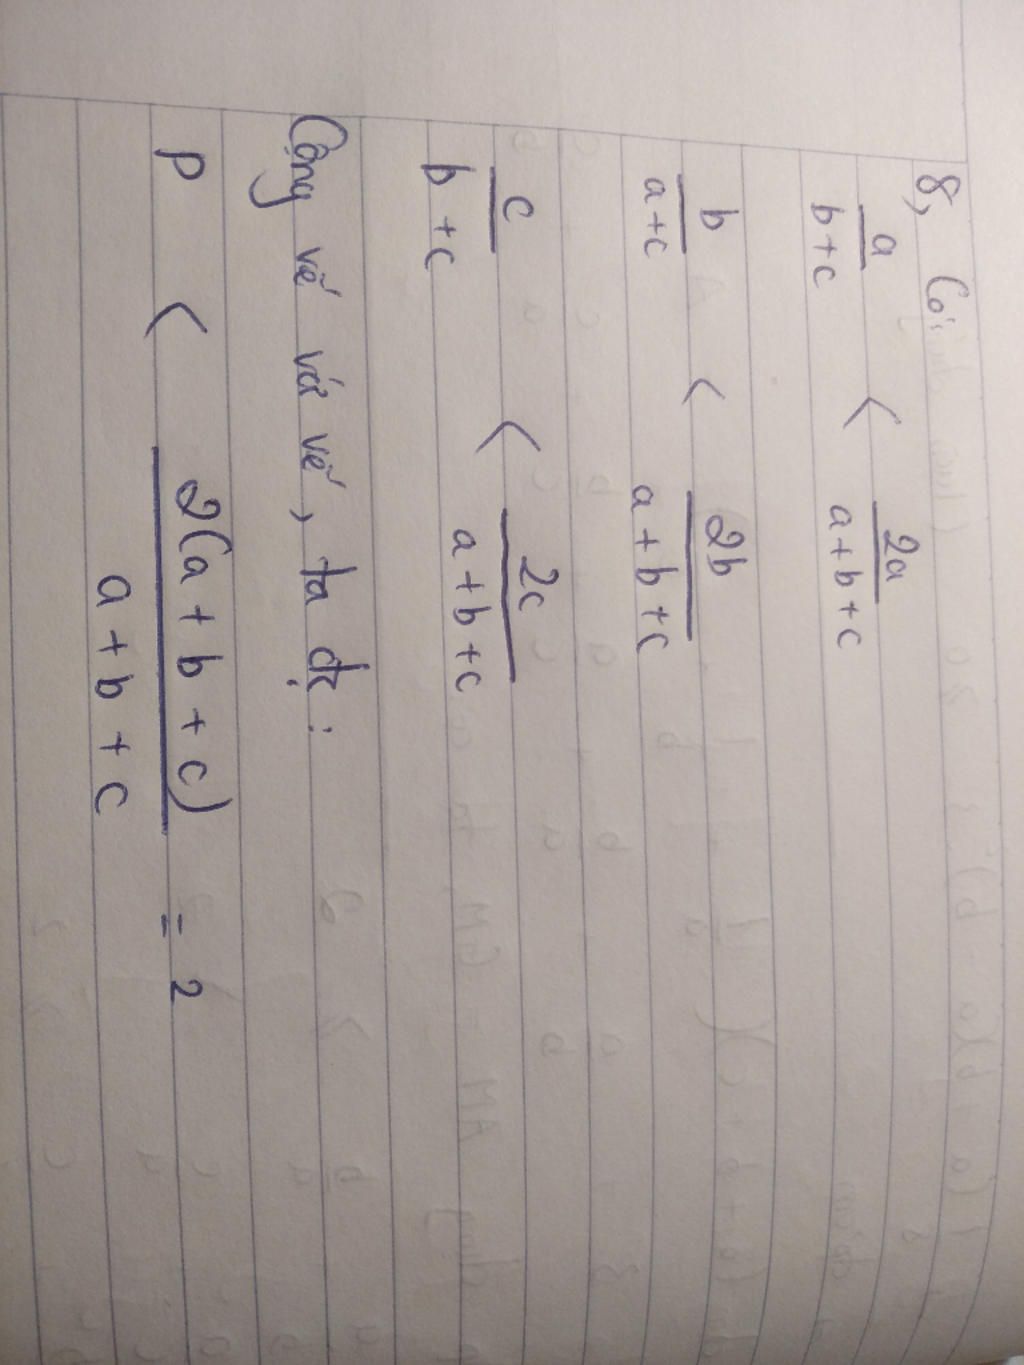 8, Có:
a/(b+c) < 2a/(a+b+c)
b/(a+c) < 2b/(a+b+c)
c/(b+c) < 2c/(a+b+c)
Cộng vế với vế, ta đc:
P < 2(a+b+c)/(a+b+c) = 2